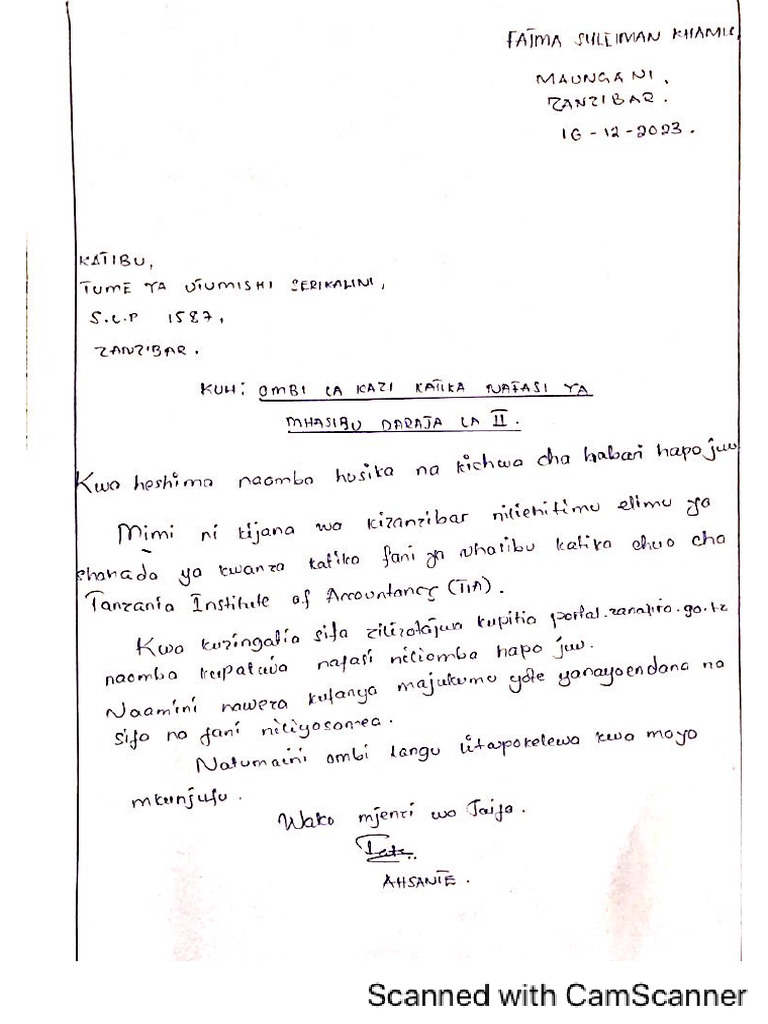 FATMA SULEIMAN KHAMIS,
MAUNGANI,
ZANZIBAR.
16-12-2023.
KATIBU,
TUME YA UTUMISHI SERIKALINI,
S.L.P 1587,
ZANZIBAR.
KUH: OMBI LA KAZI KATIKA NAFASI YA
MHASIBU DARAJA LA II.
Kwa heshima naomba husika na kichwa cha habari hapo juu
Mimi ni kijana wa kizanzibar niliehitimu elimu ya
shahada ya kwanza katika fani ya uhasibu katika chuo cha
Tanzania Institute of Accountancy (TIA).
Kwa kuzingatia sifa zilizotajwa kupitia portal.zanajira.go.tz
naomba kupatiwa nafasi niliomba hapo juu.
Naamini naweza kufanya majukumu yote yanayoendana na
sifa na fani niliyosomea.
Natumaini ombi langu litapokelewa kwa moyo
mkunjufu.
Wako mjenzi wa Taifa.
AHSANTE.
Scanned with CamScanner